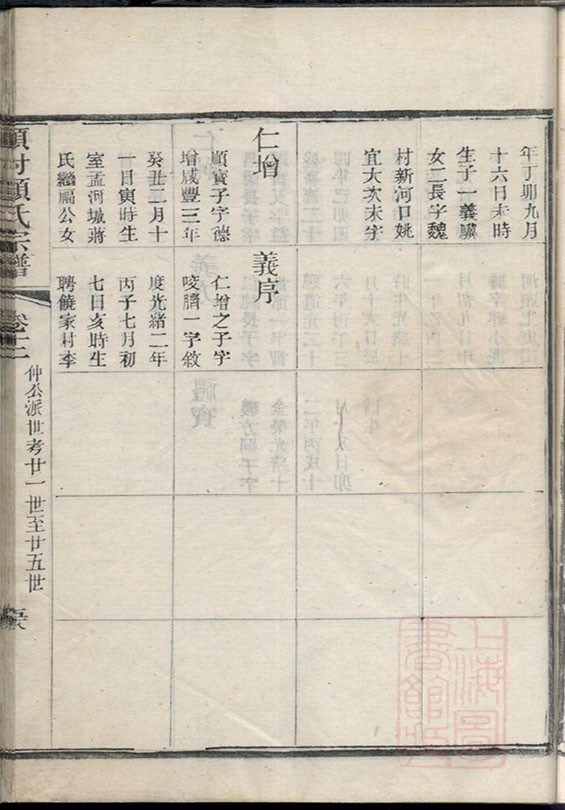 年丁卯九月
十六日未時
生子一義驥
女二長字魏
村新河口姚
宜大次未字
仁增
順寶子字德
增咸豐三年
癸丑二月十
一日寅時生
室孟河城蔣
氏繼福公女
義序
仁增之子字
咬臍一字敘
度光緒二年
丙子七月初
七日亥時生
聘饒家村李
村顧氏宗譜
卷十二
仲公派世考廿一世至廿五世
上海圖
書館